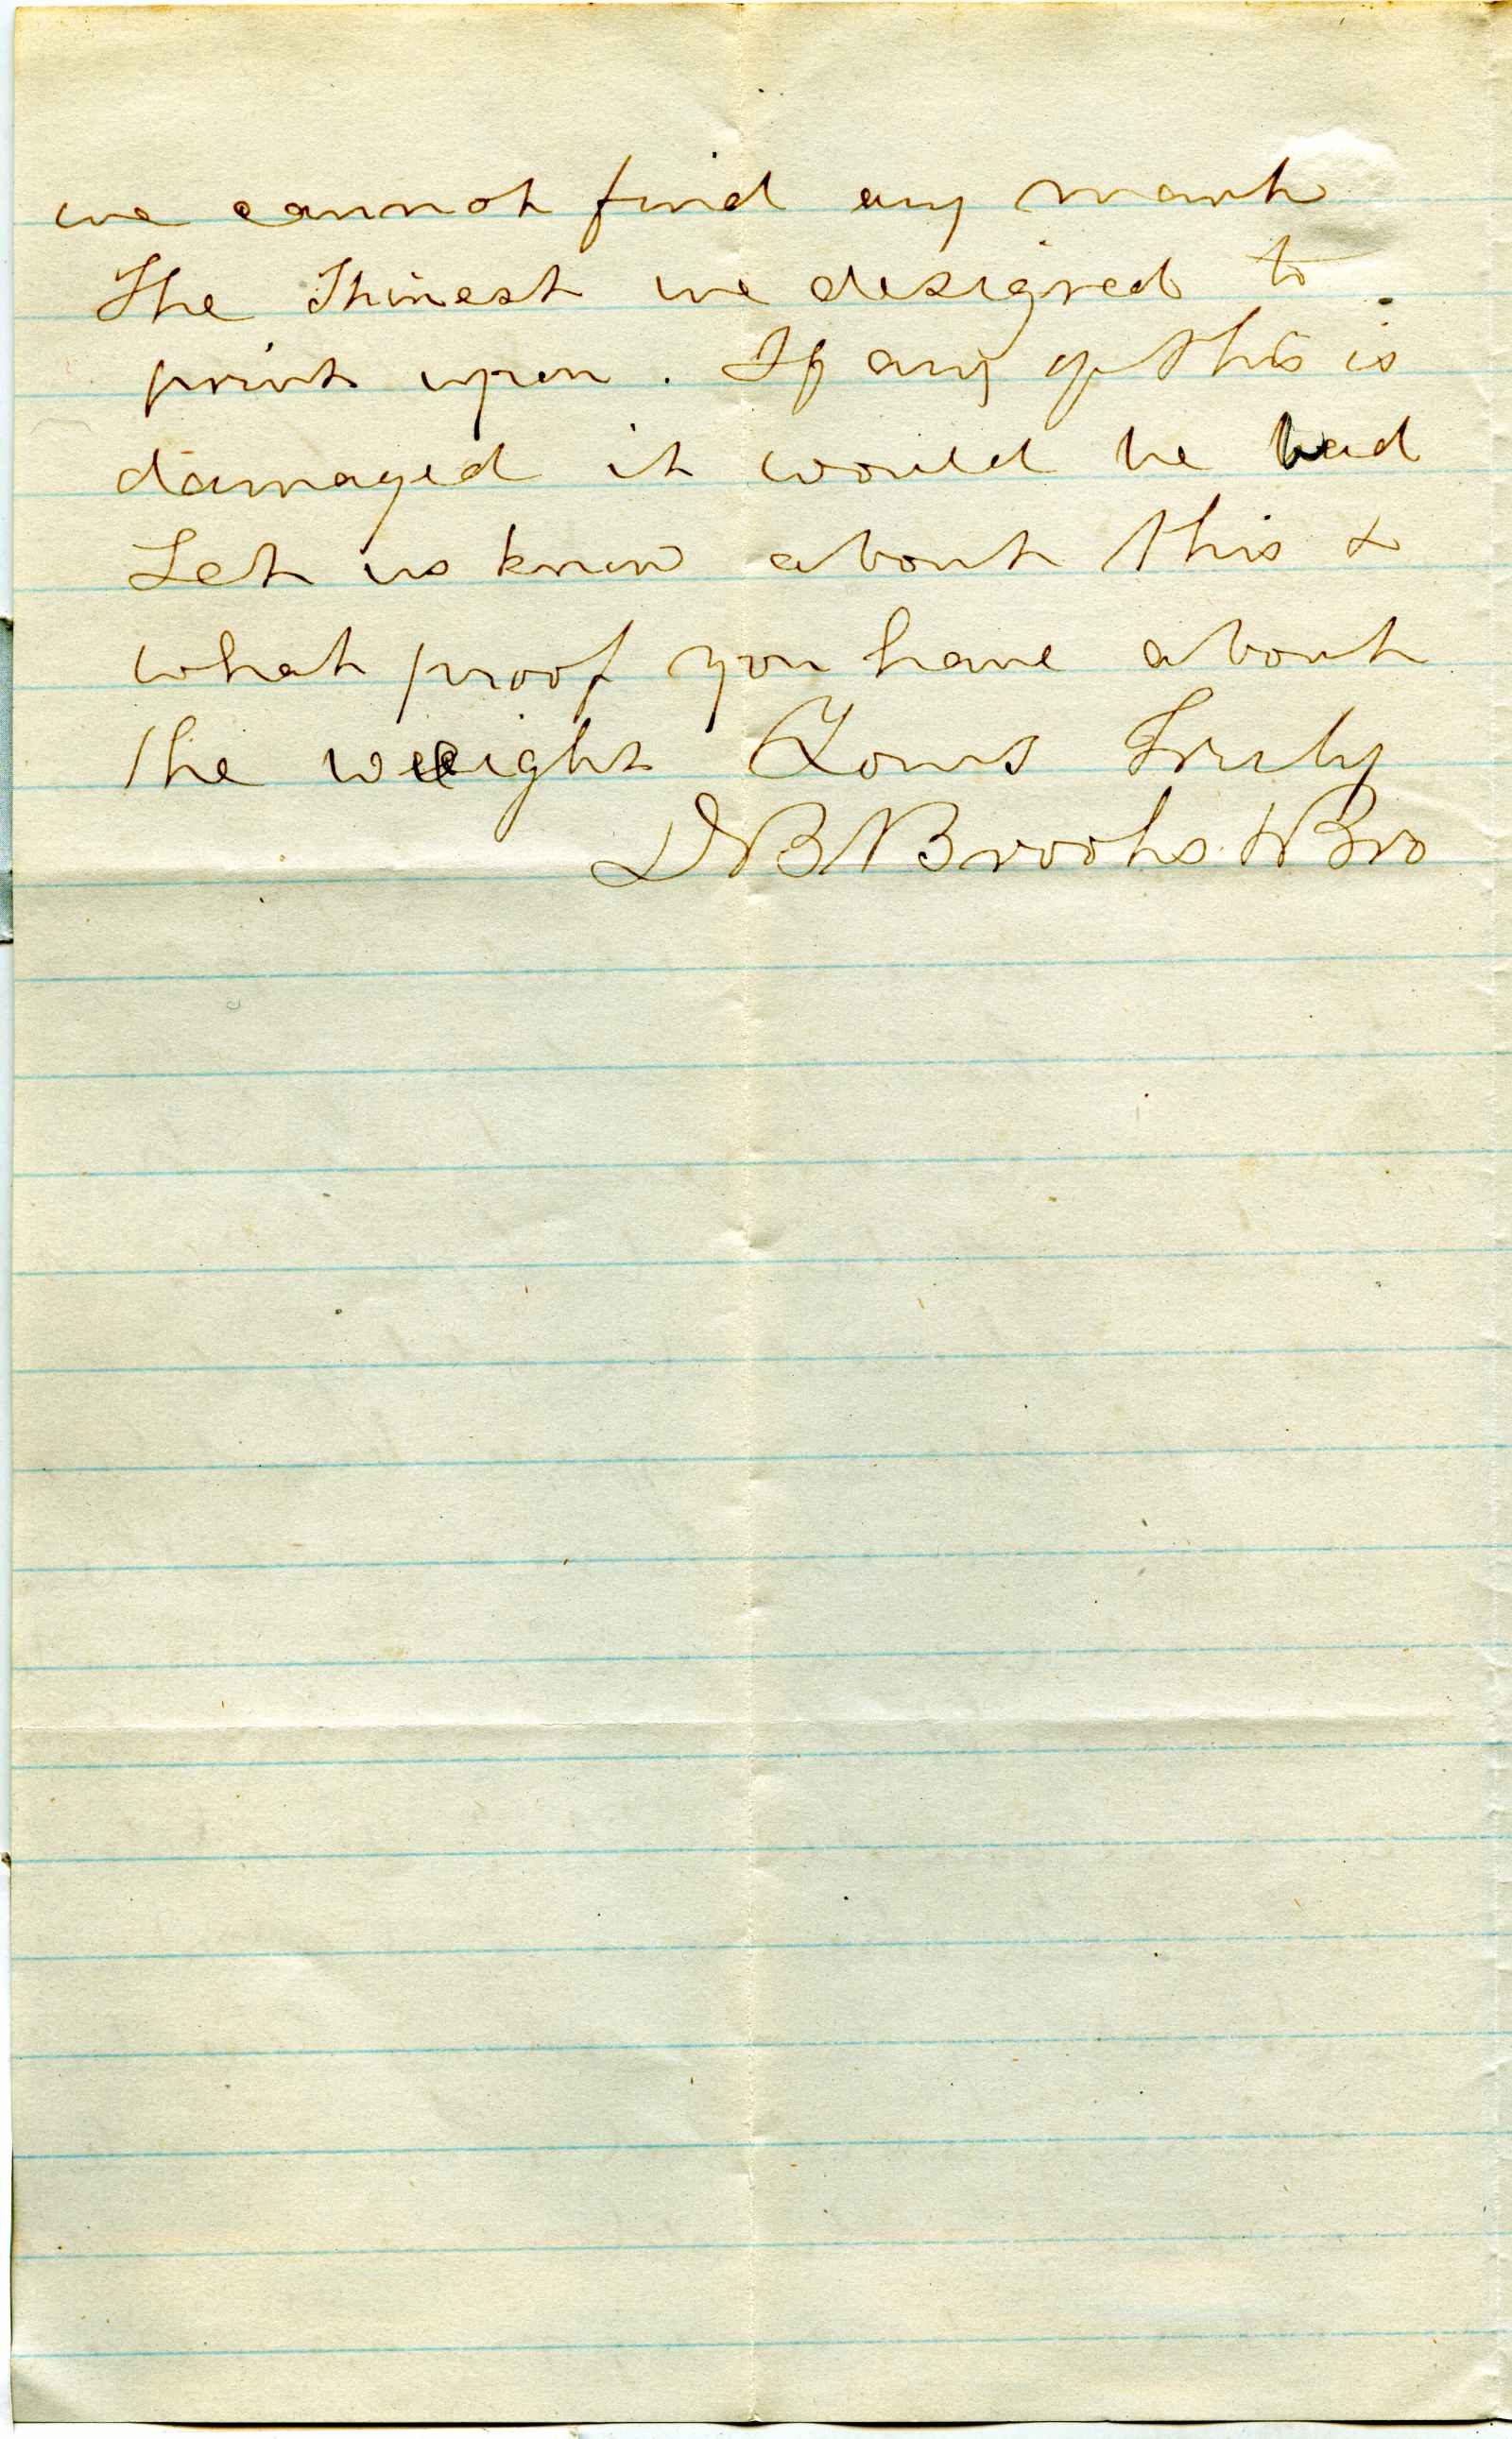 we cannot find any mark
The Thinest we designed to
print upon. If any of this is
damaged it would be bad
Let us know about this &
what proof you have about
the weight Yours Truly
D B Brooks & Bro